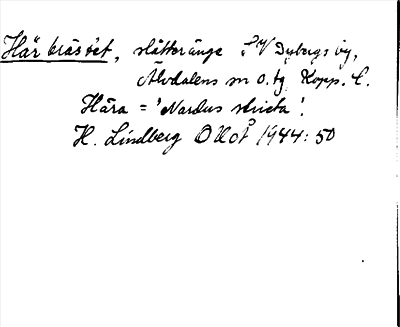 Här bräs'et, slätteränge SV Dybergs by,
Älvdalens sn o. tg Kopp. l.
Hära = 'Nardus stricta'.
H. Lindberg OUoÅ 1944: 50